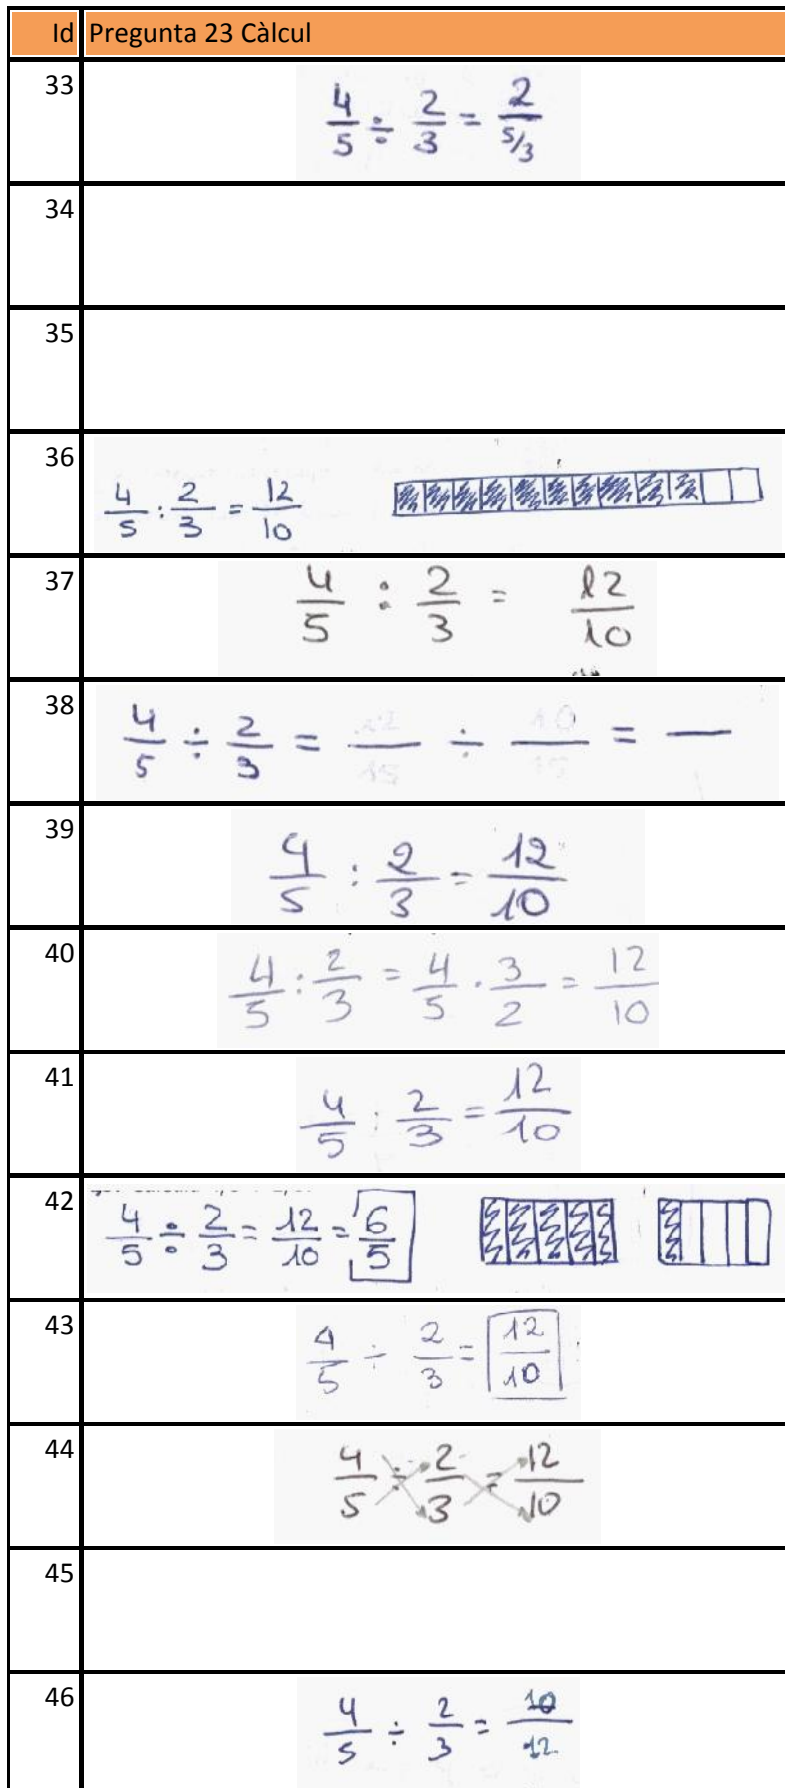 Id Pregunta 23 Càlcul
33 4/5 ÷ 2/3 = 2/(5/3)
34
35
36 4/5 : 2/3 = 12/10
37 4/5 : 2/3 = 12/10
38 4/5 ÷ 2/3 = 12/15 ÷ 10/15 = —
39 4/5 : 2/3 = 12/10
40 4/5 : 2/3 = 4/5 · 3/2 = 12/10
41 4/5 : 2/3 = 12/10
42 4/5 ÷ 2/3 = 12/10 = 6/5
43 4/5 ÷ 2/3 = 12/10
44 4/5 ÷ 2/3 = 12/10
45
46 4/5 ÷ 2/3 = 10/12